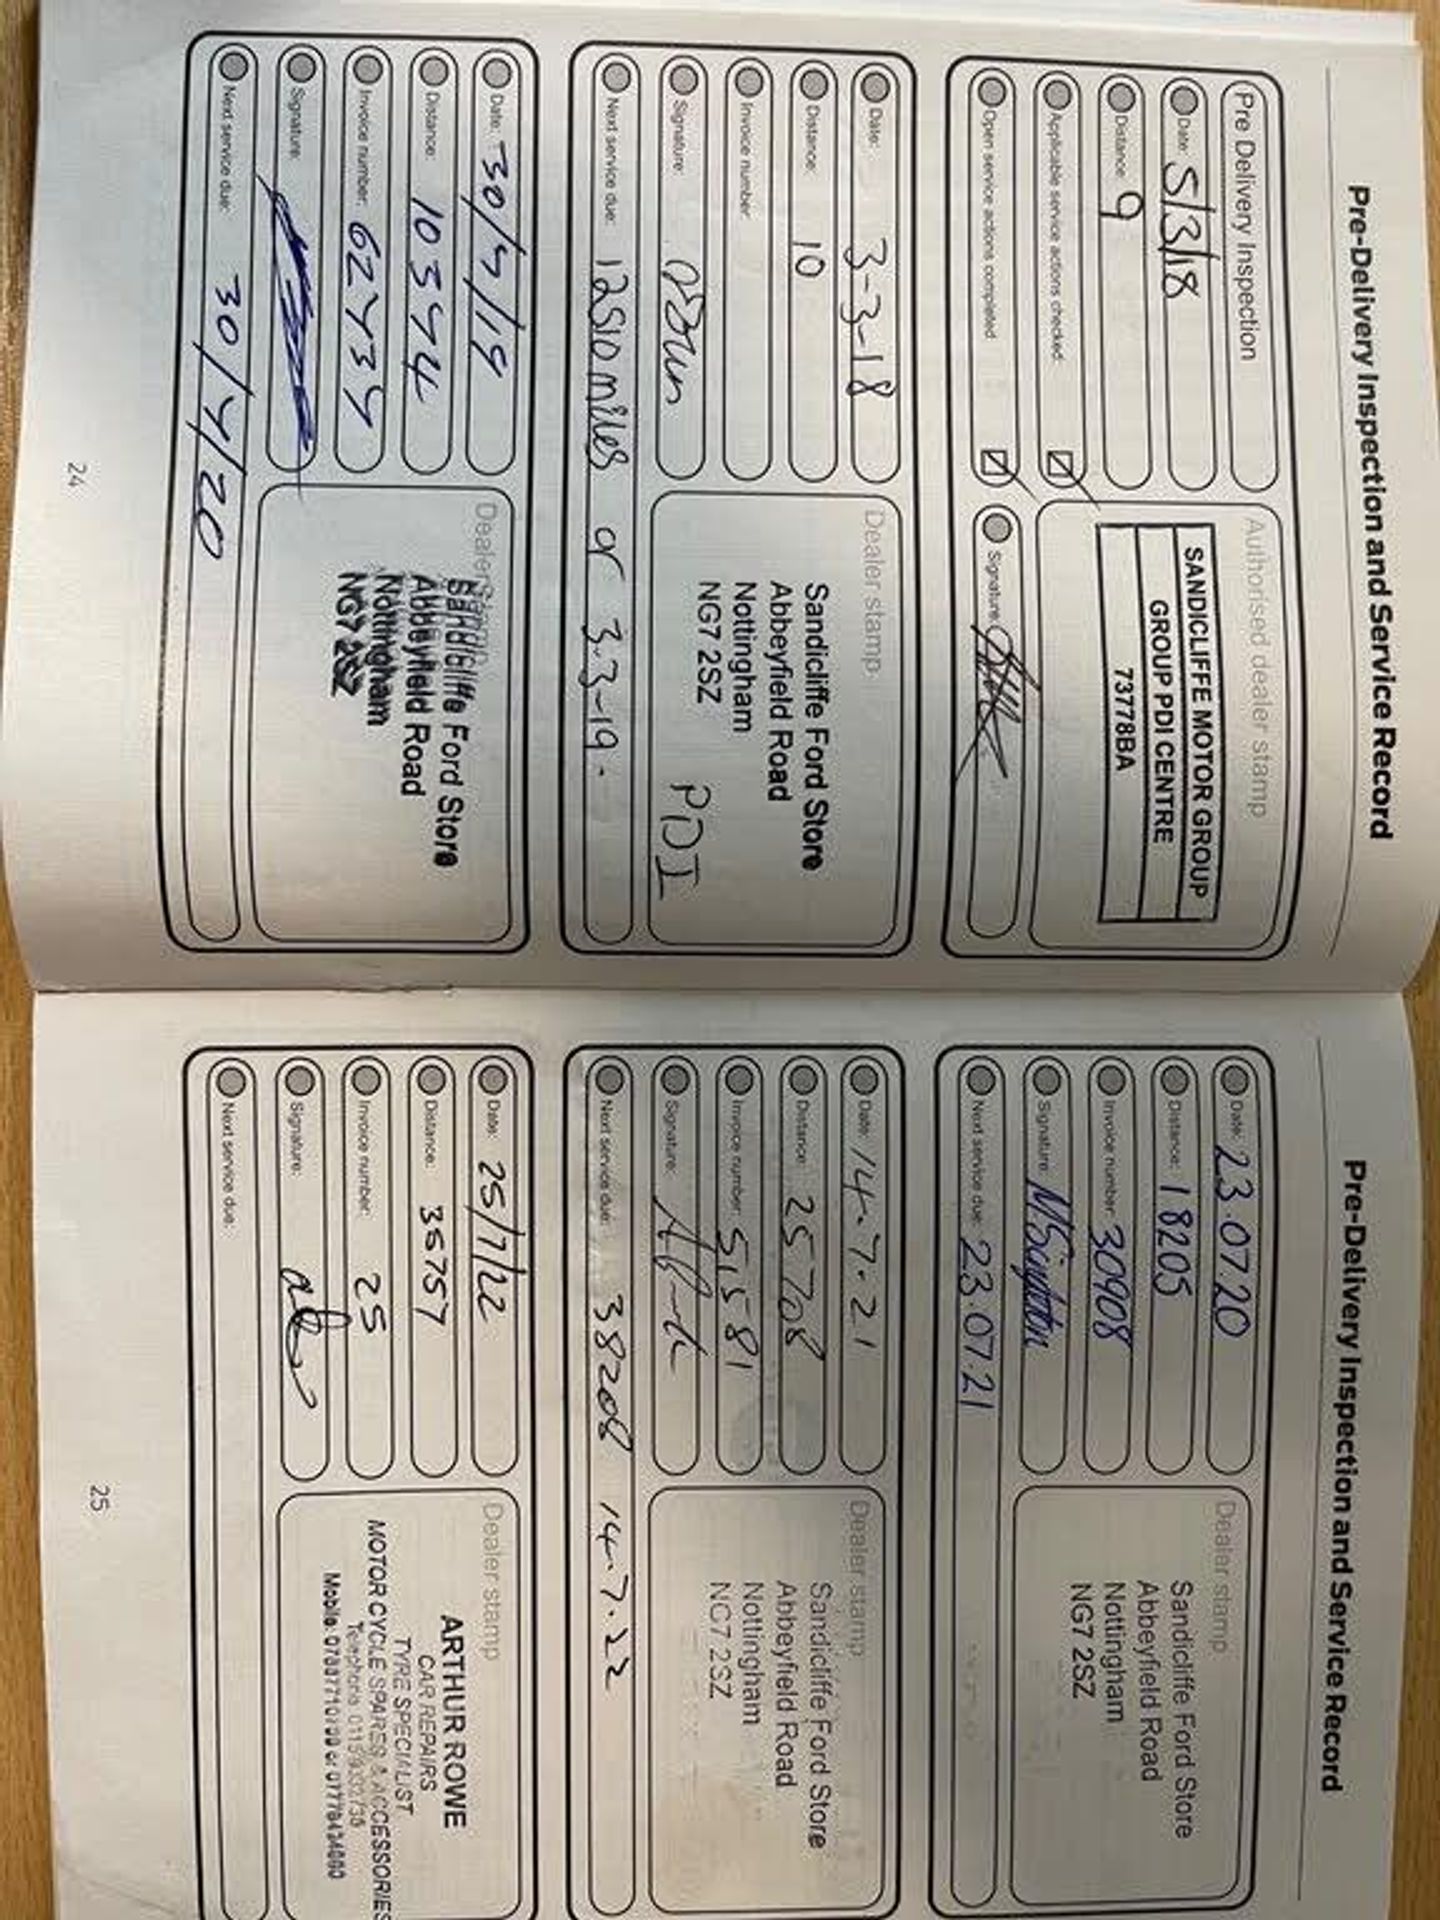 Pre-Delivery Inspection and Service Record
Pre Delivery Inspection
Date: 5/3/18
Distance: 9
Applicable service actions checked:
Open service actions completed
Authorised dealer stamp
SANDICLIFFE MOTOR GROUP
GROUP PDI CENTRE
73778BA
Signature:
Date: 3-3-18
Distance: 10
Invoice number:
Signature:
Next service due: 12510 miles or 3-3-19.
Dealer stamp
Sandicliffe Ford Store
Abbeyfield Road
Nottingham
NG7 2SZ
PDI
Date: 30/4/19
Distance: 10394
Invoice number: 62434
Signature:
Next service due: 30/4/20
Dealer stamp
Sandicliffe Ford Store
Abbeyfield Road
Nottingham
NG7 2SZ
24
Pre-Delivery Inspection and Service Record
Date: 23.07.20
Distance: 18205
Invoice number: 30908
Signature:
Next service due: 23.07.21
Dealer stamp
Sandicliffe Ford Store
Abbeyfield Road
Nottingham
NG7 2SZ
Date: 14.7.21
Distance: 25708
Invoice number: 51581
Signature:
Next service due: 38208 14.7.22
Dealer stamp
Sandicliffe Ford Store
Abbeyfield Road
Nottingham
NG7 2SZ
Date: 25/7/22
Distance: 35757
Invoice number: 25
Signature:
Next service due:
Dealer stamp
ARTHUR ROWE
CAR REPAIRS
TYRE SPECIALIST
MOTOR CYCLE SPARES & ACCESSORIES
Telephone
Mobile or
25